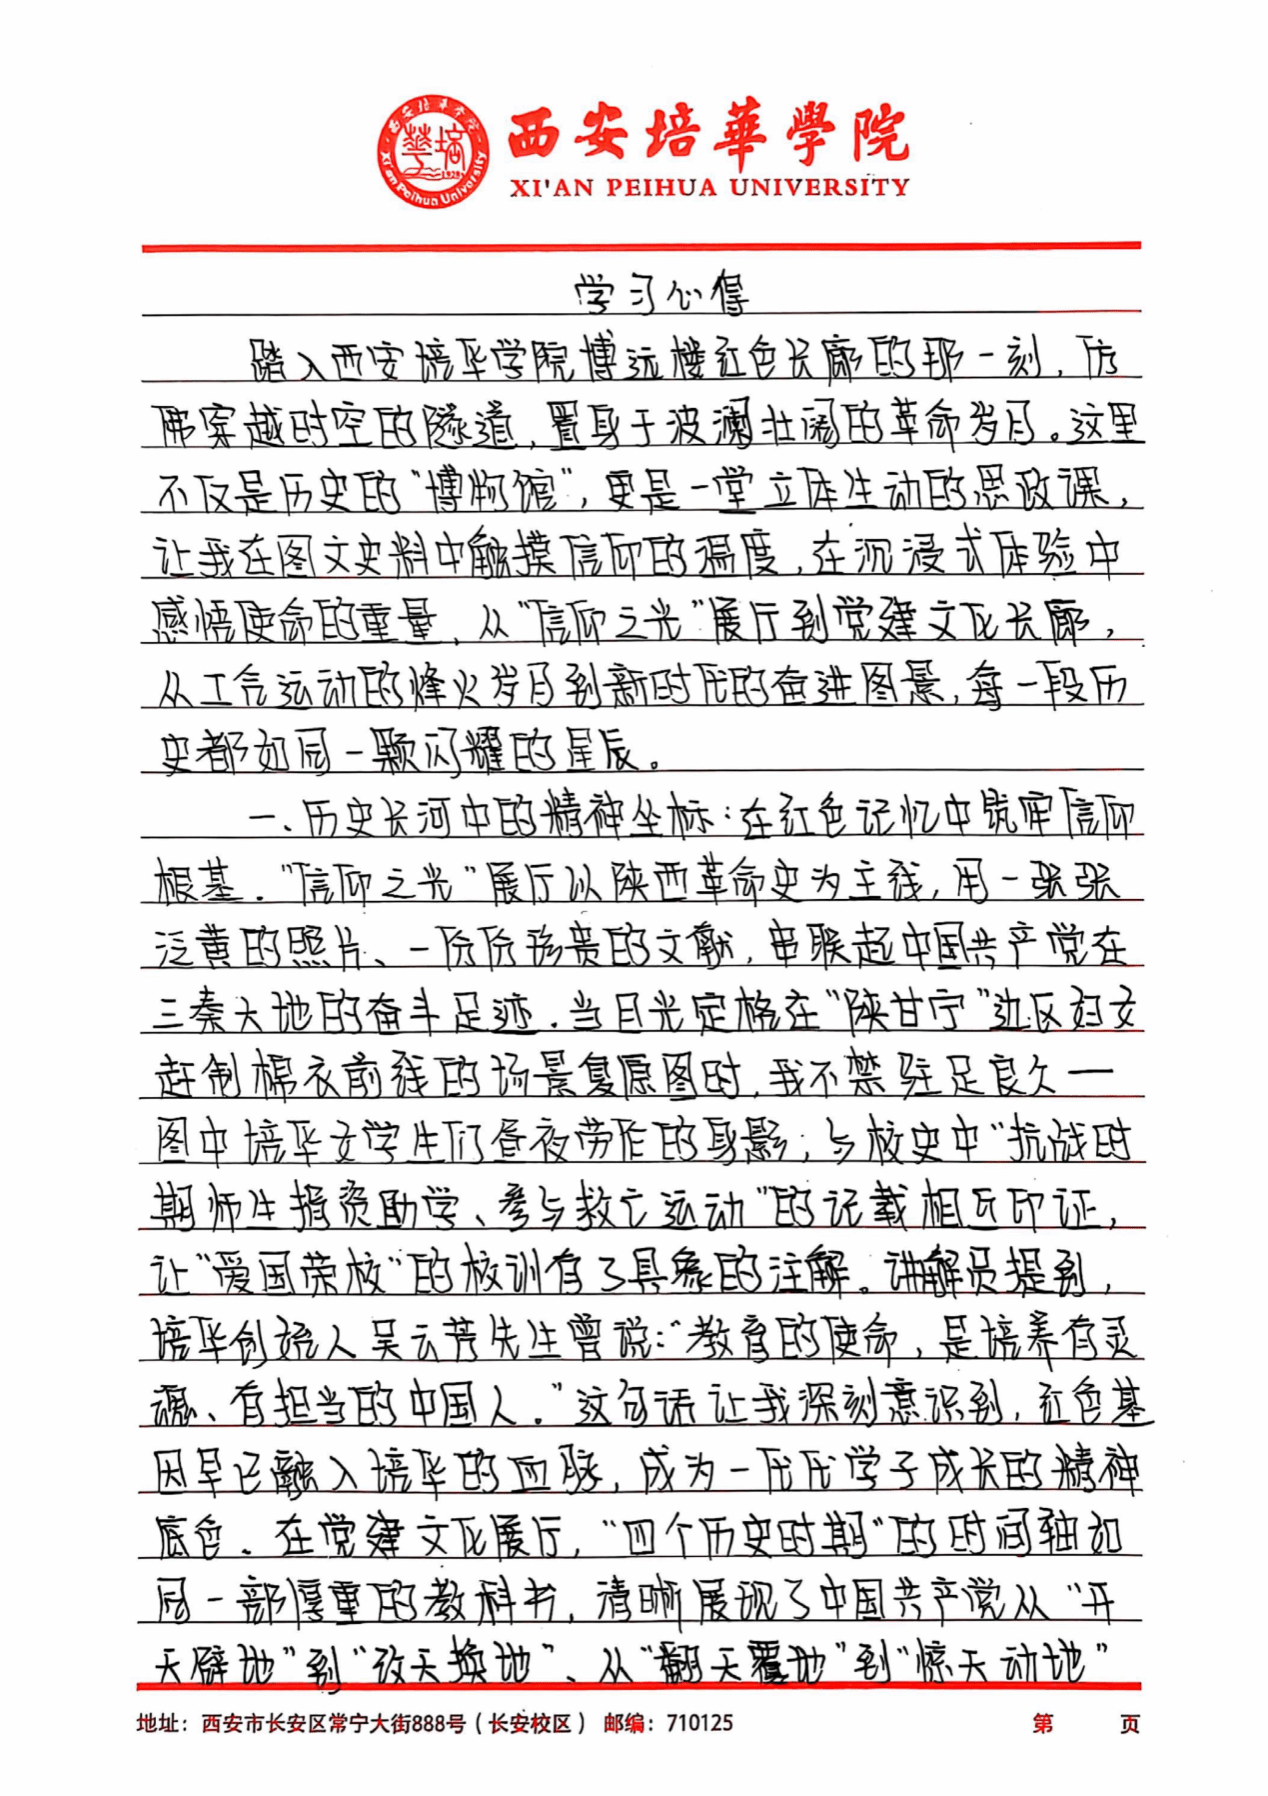 西安培華學院
XI'AN PEIHUA UNIVERSITY
学习心得
踏入西安培华学院博远楼红色长廊的那一刻，仿
佛穿越时空的隧道，置身于波澜壮阔的革命岁月。这里
不仅是历史的“博物馆”，更是一堂立体生动的思政课，
让我在图文史料中触摸信仰的温度，在沉浸式体验中
感悟使命的重量，从“信仰之光”展厅到党建文化长廊，
从工合运动的烽火岁月到新时代的奋进图景，每一段历
史都如同一颗闪耀的星辰。
一、历史长河中的精神坐标：在红色记忆中筑牢信仰
根基．“信仰之光”展厅以陕西革命史为主线，用一张张
泛黄的照片、一份份珍贵的文献，串联起中国共产党在
三秦大地的奋斗足迹．当目光定格在“陕甘宁”边区妇女
赶制棉衣前线的场景复原图时，我不禁驻足良久一
图中培华女学生们昼夜劳作的身影；与校史中“抗战时
期师生捐资助学、参与救亡运动”的记载相互印证，
让“爱国荣校”的校训有了具象的注解。讲解员提到，
培华创始人吴云芳先生曾说：“教育的使命，是培养有灵
魂、有担当的中国人。”这句话让我深刻意识到，红色基
因早已融入培华的血脉，成为一代代学子成长的精神
底色．在党建文化展厅，“四个历史时期”的时间轴如
同一部厚重的教科书，清晰展现了中国共产党从“开
天辟地”到“改天换地”、从“翻天覆地”到“惊天动地”
地址：西安市长安区常宁大街888号（长安校区） 邮编：710125 第 页